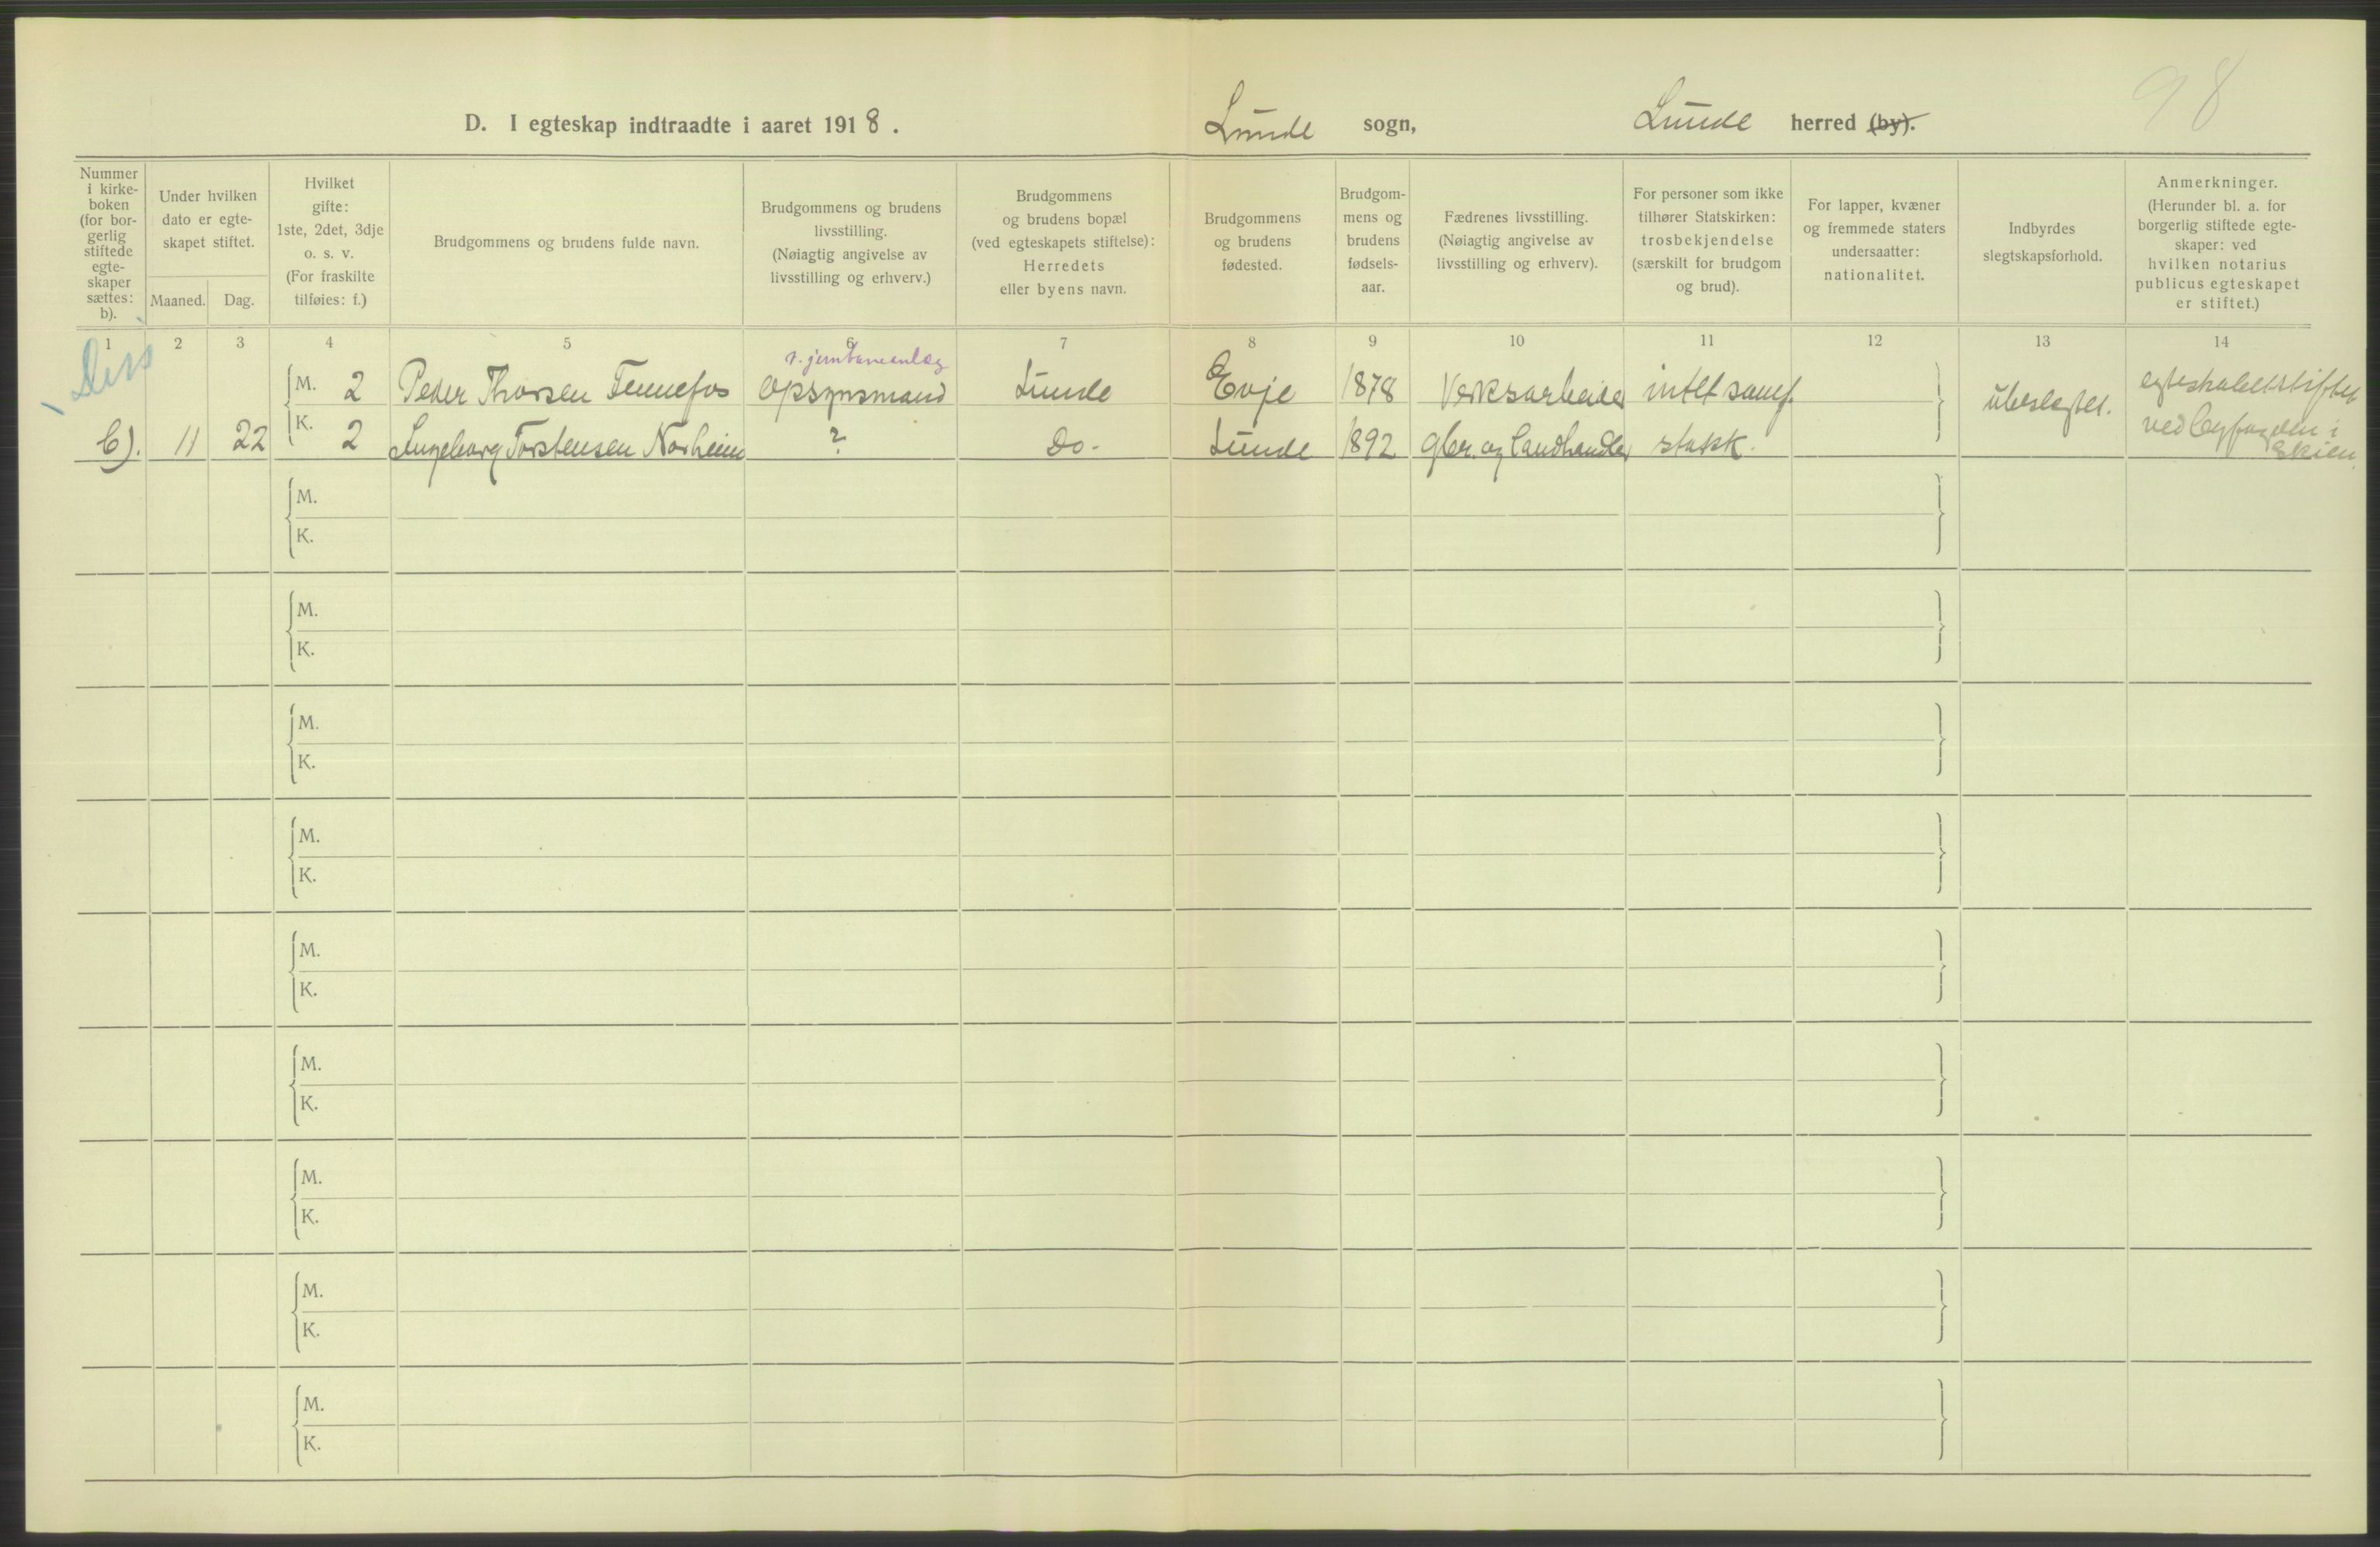 98
D. I egteskap indtraadte i aaret 1918. Lunde sogn, Lunde herred (by).
Nummer i kirke-boken (for bor-gerlig stiftede egte-skaper sættes: b).
Under hvilken dato er egte-skapet stiftet.
Maaned. Dag.
Hvilket gifte: 1ste, 2det, 3dje o. s. v. (For fraskilte tilføies: f.)
Brudgommens og brudens fulde navn.
Brudgommens og brudens livsstilling. (Nøiagtig angivelse av livsstilling og erhverv.)
Brudgommens og brudens bopæl (ved egteskapets stiftelse): Herredets eller byens navn.
Brudgommens og brudens fødested.
Brudgom-mens og brudens fødsels-aar.
Fædrenes livsstilling. (Nøiagtig angivelse av livsstilling og erhverv).
For personer som ikke tilhører Statskirken: trosbekjendelse (særskilt for brudgom og brud).
For lapper, kvæner og fremmede staters undersaatter: nationalitet.
Indbyrdes slegtskapsforhold.
Anmerkninger. (Herunder bl. a. for borgerlig stiftede egte-skaper: ved hvilken notarius publicus egteskapet er stiftet.)
1 2 3 4 5 6 7 8 9 10 11 12 13 14
v. jernbaneanlæg
M. 2 Peder Thorsen Fennefos opsynsmand Lunde Evje 1878 Verksarbeider intet samf. ubeslegtet. egteskabet stiftet
b). 11 22 K. 2 Ingeborg Torstensen Norheim ? Do. Lunde 1892 gbr. og landhandler statsk. ved byfogden i
Skien.
M.
K.
M.
K.
M.
K.
M.
K.
M.
K.
M.
K.
M.
K.
M.
K.
M.
K.